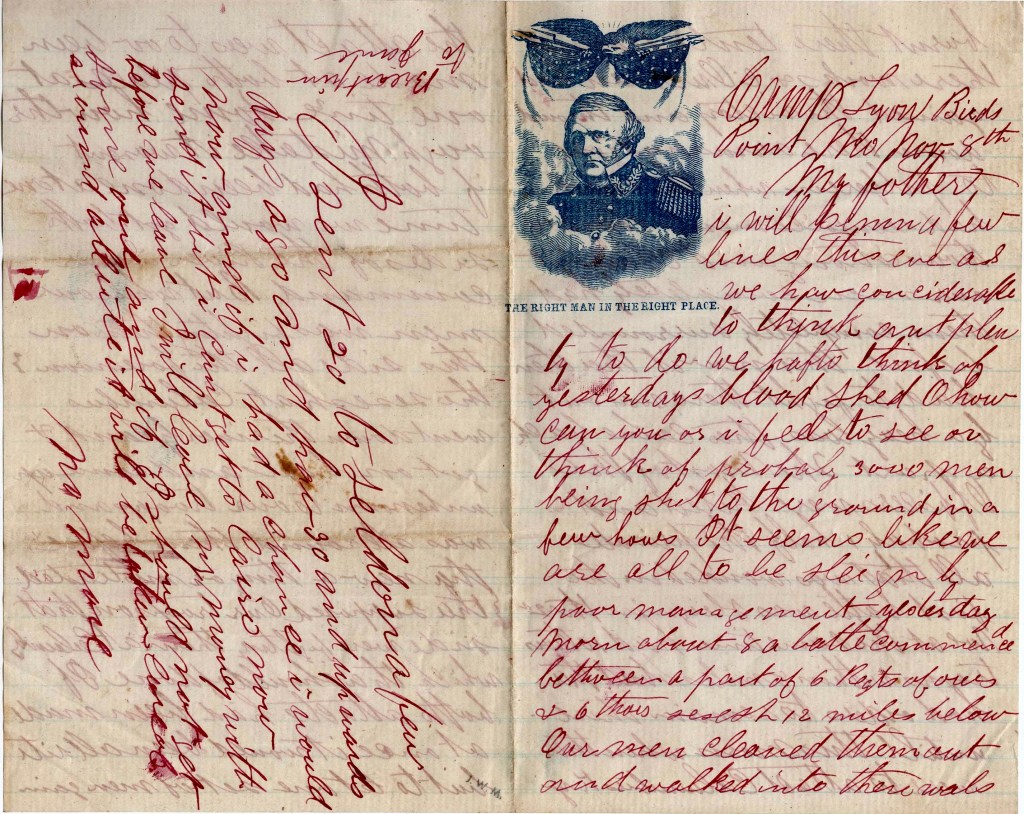 THE RIGHT MAN IN THE RIGHT PLACE.
Camp Lyon Birds
Point Mo Nov 8th
My father
i will penn a few
lines this eve as
we hav conciderable
to think ant plen
ty to do we hafto think of
yesterdays blood shed O how
can you or i feel to see or
think of probaly 3000 men
being shot to the ground in a
few hours It seems like we
are all to be sleign by
poor management yesterday
morn about 8 a battle commence
between a part of 6 Regts of ours
& 6 thous sesesh 12 miles below
Our men cleaned them out
and walked into there
I sent 20 to seldom a few
days ago and
now and if i had a chanse i would
send it but i cant get to Cairo now
before we leave I will leave my money with
some one and if I should not get
around all write it will be taken care of
no more
to